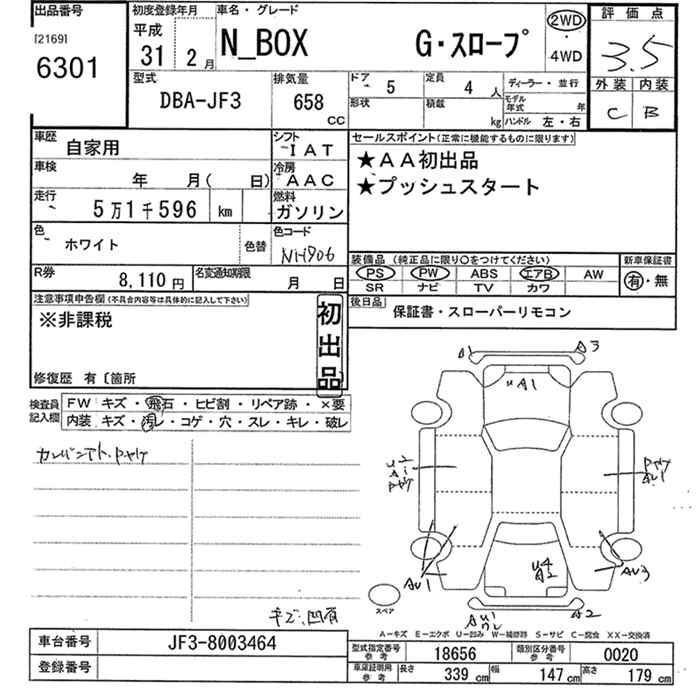 出品番号
[2169]
6301
初度登録年月
平成
31 2月
車名・グレード
N_BOX G・スロープ
2WD
・
4WD
評価点
3.5
外装 内装
C B
型式
DBA-JF3
排気量
658
CC
ドア 5
定員 4 人
ディーラー・並行
形状
積載 kg
モデル年式 年
ハンドル 左・右
車歴 自家用
シフト IAT
車検 年 月( 日)
冷房 AAC
走行 5万1千596 km
燃料 ガソリン
色 ホワイト
色替
色コード NH906
R券 8,110円
名変通知期限 月 日
セールスポイント(正常に機能するものに限ります)
★AA初出品
★プッシュスタート
装備品 (純正品に限り○をつけてください)
新車保証書
PS PW ABS エアB AW
SR ナビ TV カワ
有・無
後日品 保証書・スローパーリモコン
注意事項申告欄(不具合内容等は具体的に記入して下さい)
※非課税
初出品
修復歴 有〔箇所
検査員記入欄
FW キズ・飛石・ヒビ割・リペア跡・×要
内装 キズ・汚レ・コゲ・穴・スレ・キレ・破レ
キズ、凹有
A1
A3
A1
AU1
AU1
AU3
A2
スペア
A-キズ E-エクボ U-凹み W-補修跡 S-サビ C-腐食 XX-交換済
車台番号 JF3-8003464
登録番号
型式指定番号参考 18656
類別区分番号参考 0020
車庫証明用参考 長さ 339 cm 幅 147 cm 高さ 179 cm